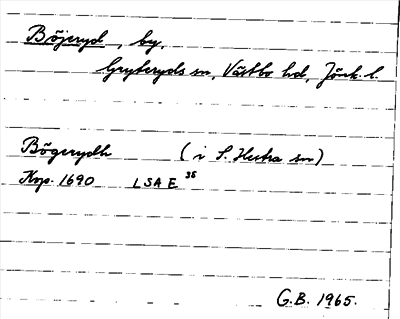 Böjeryd, by,
Gryteryds sn, Västbo hd, Jönk. l.
Bögerydh (i S. Hestra sn)
Kop. 1690 LSA E 35
G.B. 1965.